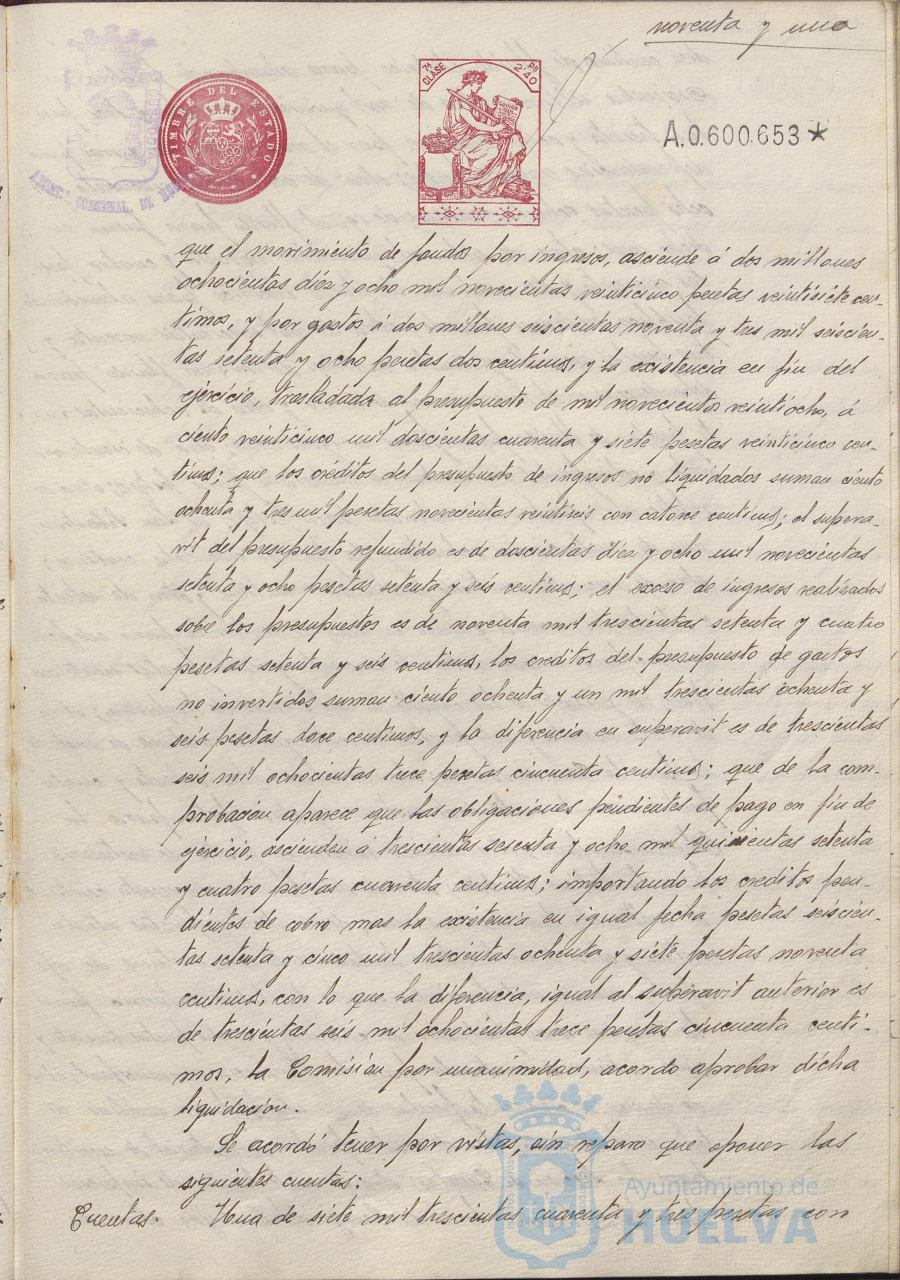 noventa y uno
TIMBRE DEL ESTADO
7ª CLASE 2'40 PS
A.0.600.653 *
que el movimiento de fondos por ingresos, asciende á dos millones
ochocientas diez y ocho mil novecientas veinticinco pesetas veintisiete cen-
timos, y por gastos á dos millones seiscientas noventa y tres mil seiscien-
tas setenta y ocho pesetas dos centimos, y la existencia en fin del
ejercicio, trasladada al presupuesto de mil novecientos veintiocho, á
ciento veinticinco mil doscientas cuarenta y siete pesetas veinticinco cen-
timos; que los créditos del presupuesto de ingresos no liquidados suman ciento
ochenta y tres mil pesetas novecientas veintiseis con catorce centimos; el supera-
vit del presupuesto refundido es de doscientas diez y ocho mil novecientas
setenta y ocho pesetas setenta y seis centimos; el exceso de ingresos realizados
sobre los presupuestos es de noventa mil trescientas setenta y cuatro
pesetas setenta y seis centimos, los creditos del presupuesto de gastos
no invertidos suman ciento ochenta y un mil trescientas ochenta y
seis pesetas doce centimos, y la diferencia en superavit es de trescientas
seis mil ochocientas trece pesetas cincuenta centimos; que de la com-
probacion aparece que las obligaciones pendientes de pago en fin de
ejercicio, ascienden a trescientas sesenta y ocho mil quinientas setenta
y cuatro pesetas cuarenta centimos; importando los creditos pen-
dientes de cobro mas la existencia en igual fecha pesetas seiscien-
tas setenta y cinco mil trescientas ochenta y siete pesetas noventa
centimos, con lo que la diferencia, igual al superavit anterior es
de trescientas seis mil ochocientas trece pesetas cincuenta centi-
mos, la Comisión por unanimidad, acordo aprobar dicha
liquidacion.
Se acordó tener por vistas, sin reparo que oponer las
siguientes cuentas:
Cuentas. Una de siete mil trescientas cuarenta y tres pesetas con
Ayuntamiento de
HUELVA